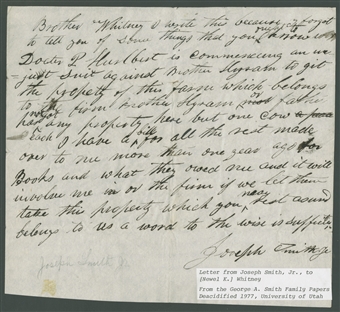 Brother Whitney I write this because I forgot
to tell you of Some things that you ought to know
Docter P. Hurlbert is commencing an un
just Suit against Brother Hyram to git
the property of this farm which belongs
to the firm Brother Hyram or Father
had not any property here but one cow
Each I have a bill for all the rest made
over to me more than one year ago for
Books and what they owed me and it will
involve me in or the firm if we let them
take the property which you know
belongs to us a word to the wise is sufficient
Joseph Smith Jr
Joseph Smith Jr.
Letter from Joseph Smith, Jr., to
(Newel K.) Whitney
From the George A. Smith Family Papers
Deacidified 1977, University of Utah